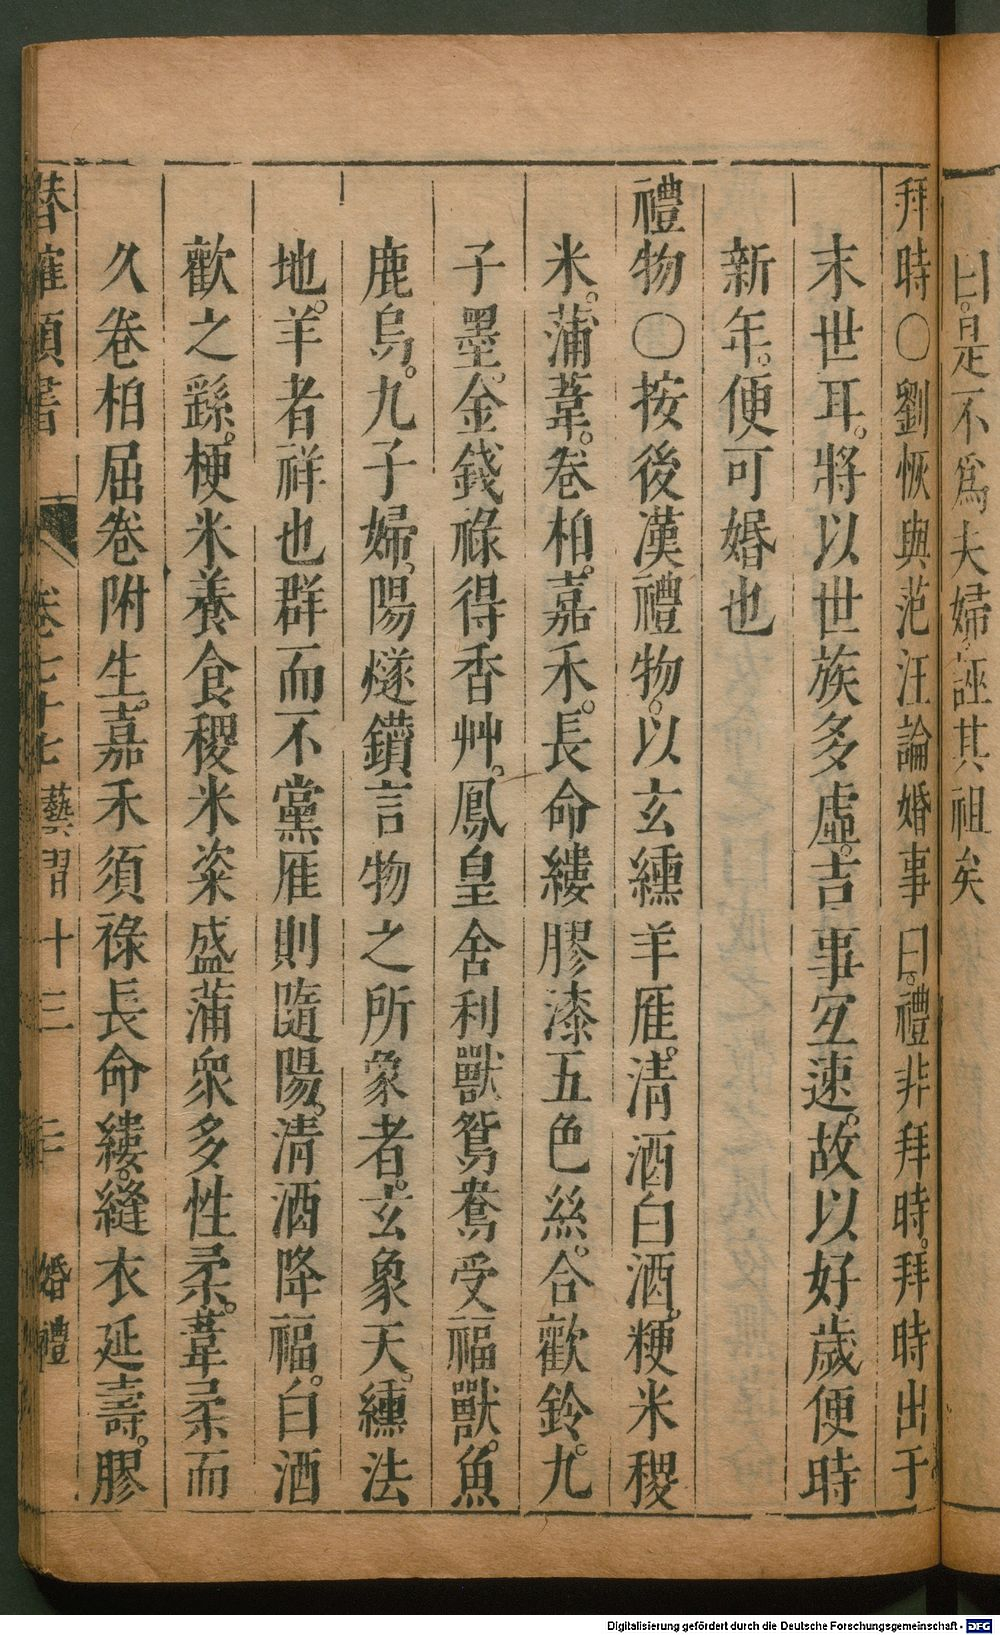 曰。是不爲夫婦誣其祖矣
拜時○劉恢與范汪論婚事曰。禮非拜時。拜時出于
末世耳。將以世族多虛。吉事宐速。故以好歲便時
新年。便可婚也
禮物○按後漢禮物。以玄纁羊雁。清酒白酒。粳米稷
米。蒲葦。卷柏。嘉禾。長命縷膠漆五色絲。合歡鈴。九
子墨。金錢祿得香艸。鳳皇舍利獸鴛鴦受福獸。魚
鹿烏。九子婦。陽燧鑽言物之所象者。玄象天。纁法
地。羊者祥也群而不黨雁則隨陽。清酒降福。白酒
歡之繇。粳米養食稷米粢盛蒲衆多性柔。葦柔而
久卷柏屈卷附生。嘉禾須祿長命縷。縫衣延壽。膠
類書 卷七十七 藝習十三 婚禮
Digitalisierung gefördert durch die Deutsche Forschungsgemeinschaft - DFG